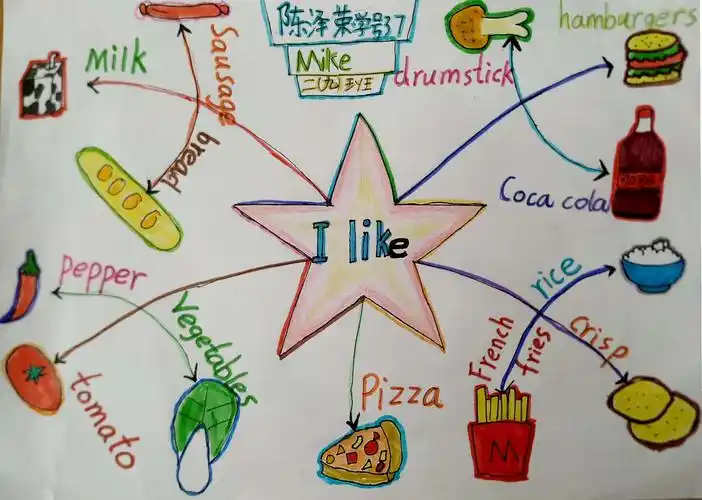 陈泽荣学号37
Mike
hamburgers
drumstick
Sausage
Milk
bread
Coca cola
I like
pepper
rice
Vegetables
French
fries
crisp
tomato
Pizza
M